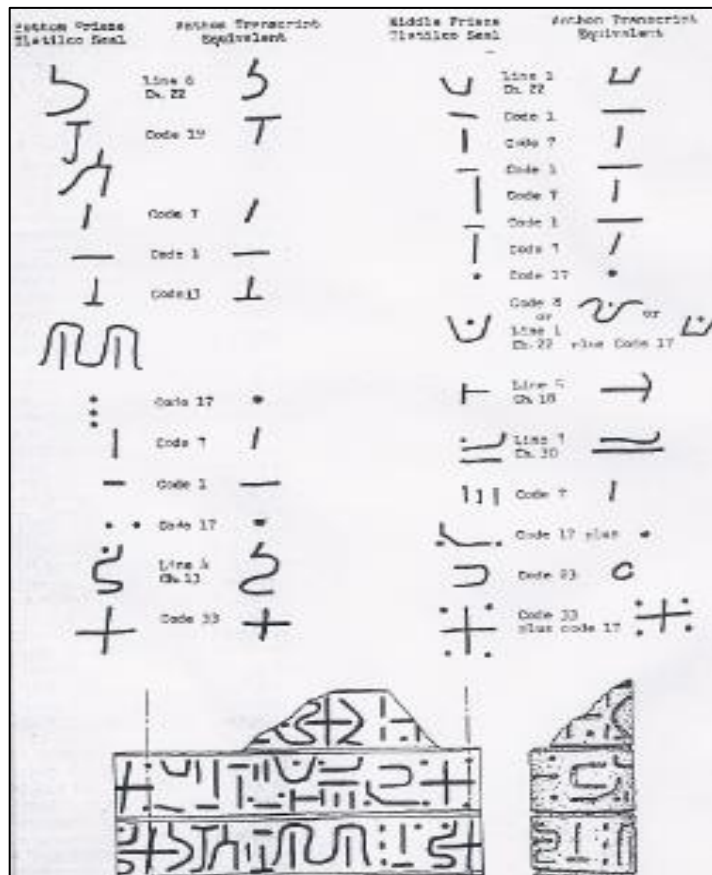 Bottom Frieze
Tlatilco Seal
Anthon Transcript
Equivalent
Line 6
Ch. 22
Code 19
Code 7
Code 1
Code 13
Code 17
Code 7
Code 1
Code 17
Line 4
Ch. 13
Code 33
Middle Frieze
Tlatilco Seal
Anthon Transcript
Equivalent
Line 1
Ch. 22
Code 1
Code 7
Code 1
Code 7
Code 1
Code 7
Code 17
Code 8
or
Line 1
Ch. 22 plus Code 17
or
Line 5
Ch. 18
Line 7
Ch. 30
Code 7
Code 17 plus
Code 23
Code 33
plus code 17